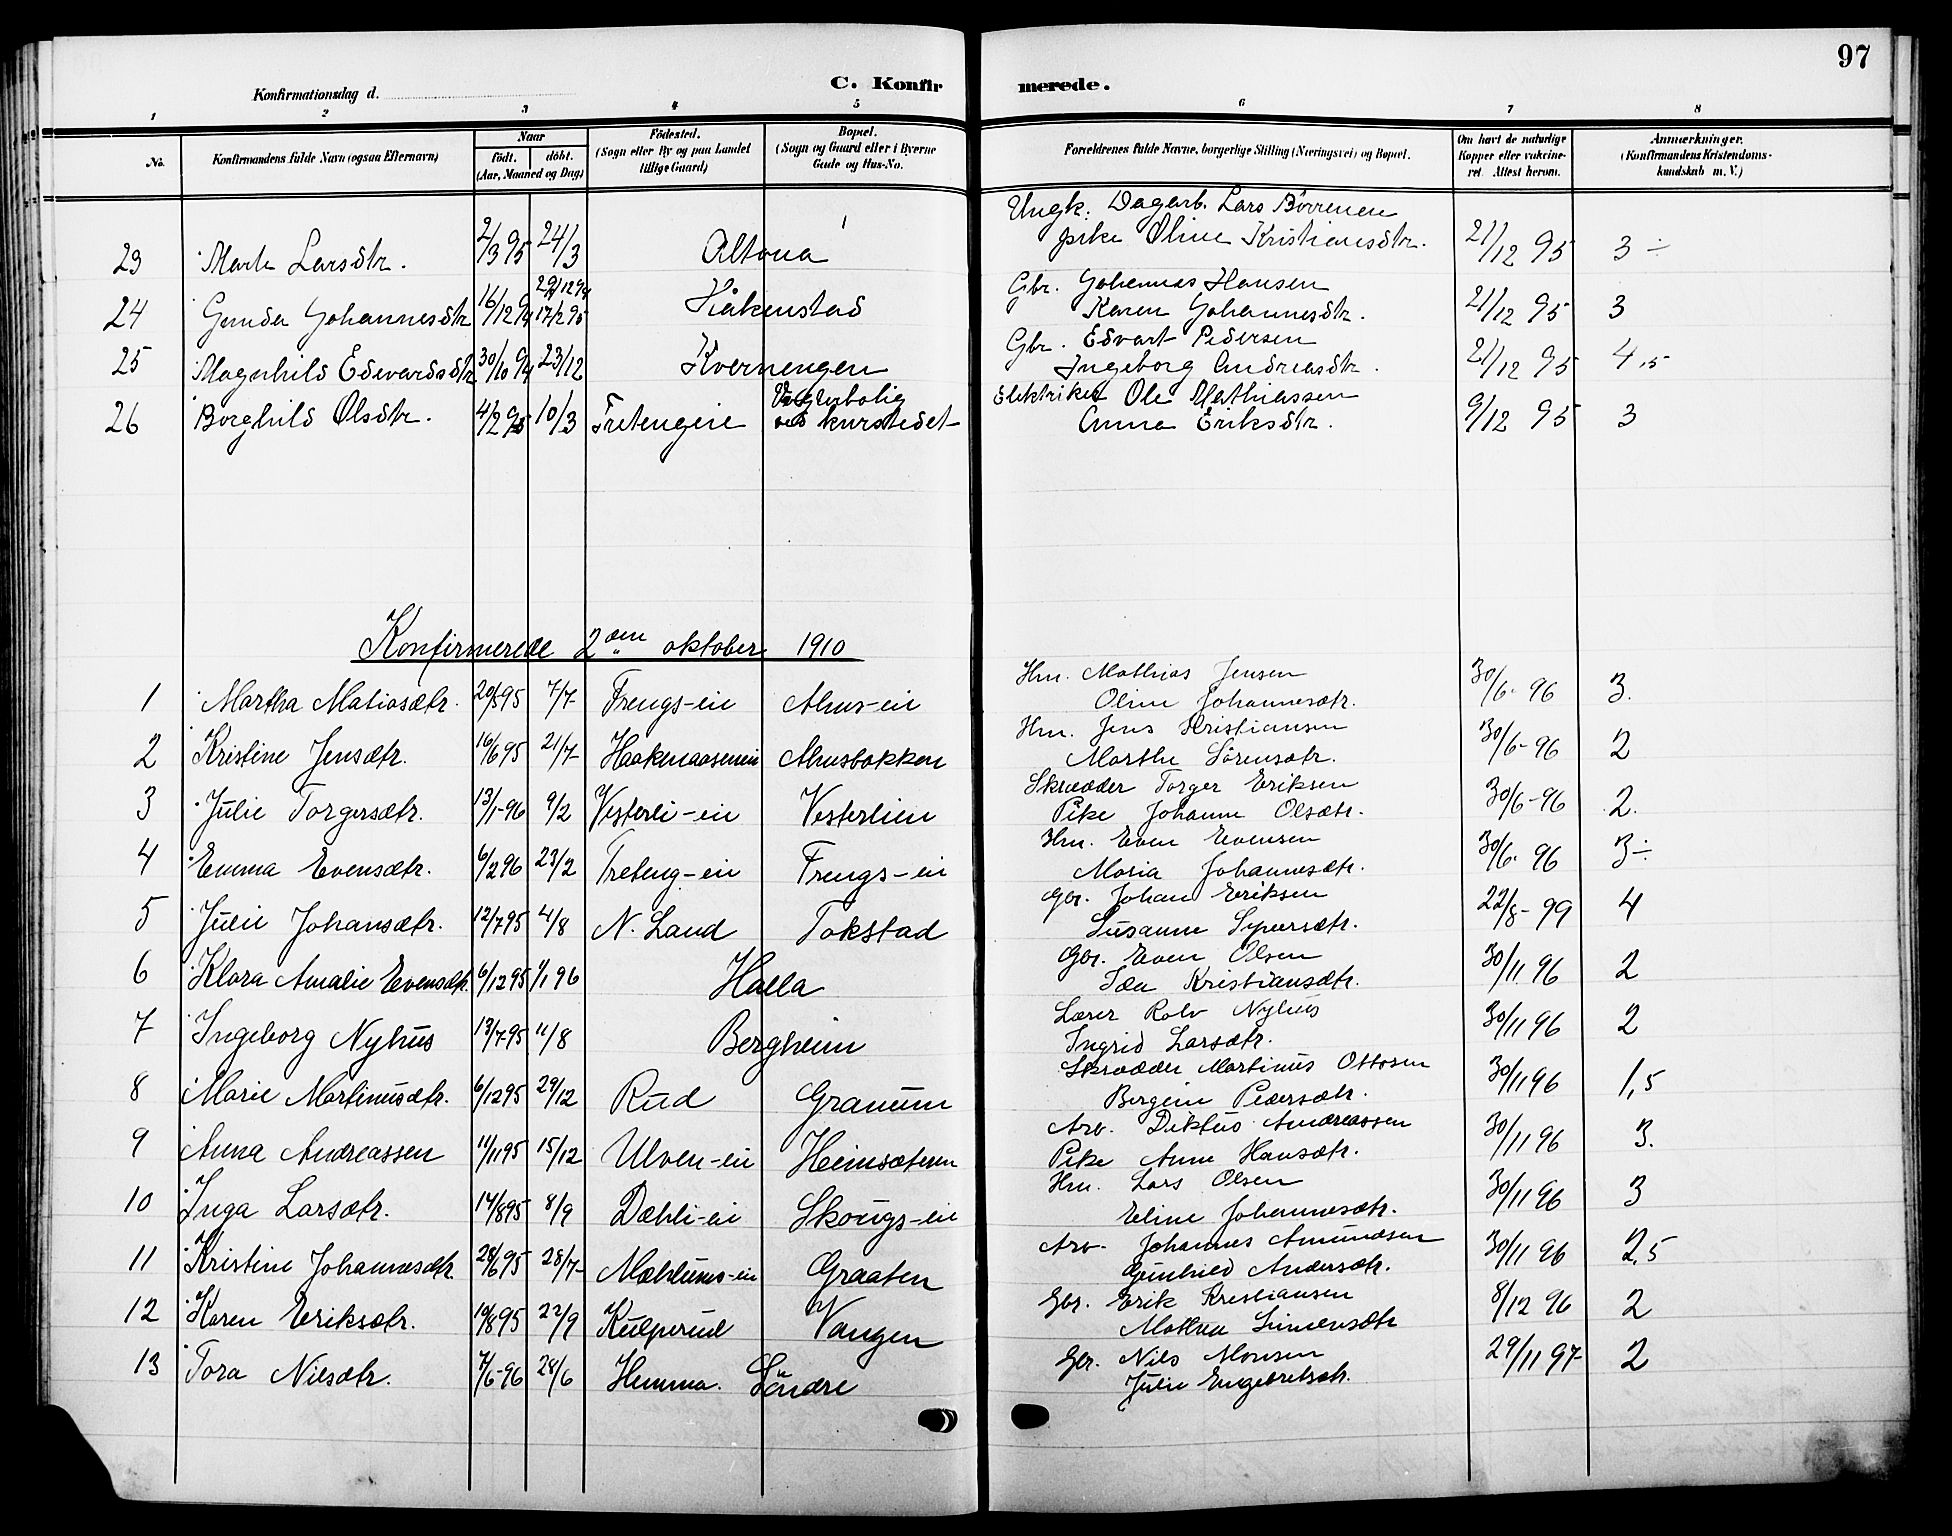 97
C. Konfirmerede.
Konfirmationsdag d.
1 2 3 4 5 6 7 8
No. Konfirmandens fulde Navn (ogsaa Efternavn) Naar födt. döbt. (Aar, Maaned og Dag) Födested. (Sogn eller By og paa Landet tillige Gaard) Bopæl. (Sogn og Gaard eller i Byerne Gade og Hus-No. Forældrenes fulde Navne, borgerlige Stilling (Næringsvei) og Bopæl. Om havt de naturlige Kopper eller vakcineret. Attest herom. Anmærkninger. (Konfirmandens Kristendomskundskab m. V.)
Ungk. Dagarb. Lars
23 Larsdtr. 2/3 95 24/3 Altona pike Oline Kristiansdtr. 21/12 95 3 ÷
Gbr. Johannes Hansen
24 Gunda Johannesdtr 16/12 94 17/2 95 Håkenstad Karen Johannesdtr. 21/12 95 3
Gbr. Edvart Pedersen
25 Magnhild Edevardsdtr 30/10 94 23/12 Kvernengen Ingeborg Andreasdtr. 21/12 95 4,5
Elektriker Ole Mathiassen
26 Borghild Olsdtr. 4/2 95 10/3 Tretengeie ved kurstedet Anna Eriksdtr. 9/12 95 3
Konfirmerede 2den oktober 1910
Hm. Mathias Jensen
1 Martha Matiasdtr. 20/5 95 7/7 Frengs-eie Ahus-eie Oline Johannesdtr. 30/6. 96 3.
Hm. Jens Kristiansen
2 Kristine Jensdtr. 16/6 95 21/7 Ahusbakken Marthe Sörensdtr. 30/6-96 2
Skrædder Torger Eriksen
3 Julie Torgersdtr. 13/1-96 9/2 Vesterli-eie Vesterlien Pike Johanne Olsdtr. 30/6-96 2.
Hm. Even Evensen
4 Emma Evensdtr. 6/2 96 23/2 Treteng-eie Frengs-eie Maria Johannesdtr. 30/6. 96 3÷
Gbr. Johan Eriksen
5 Julie Johansdtr. 12/7 95 4/8 N. Land Tokstad Susanne Syversdtr. 22/8-99 4
Gbr. Even Olsen
6 Klara Amalie Evensdtr. 6/12 95 1/1 96 Halla Ida Kristiansdtr. 30/11. 96 2
Lærer Rolv Nyhus
7 Ingeborg Nyhus 13/7-95 11/8 Bergheim Ingrid Larsdtr. 30/11 96 2
Skrædder Martinus Ottosen
8 Marie Martinusdtr. 6/12 95 29/12 Rud Granum Bergine Pedersdtr. 30/11 96 1,5
Arb. Diktus Andreassen
9 Anna Andreassen 11/11 95 15/12 Ulven-eie Heimsæteren Pike Anne Hansdtr. 30/11 96 3.
Hm. Lars Olsen
10 Inga Larsdtr. 14/8 95 8/9 Dæhli-eie Skougs-eie Eline Johannesdtr. 30/11 96 3
Arb. Johannes Amundsen
11 Kristine Johannesdtr. 28/6 95 28/7 Mæhlums-eie Graaten Gunhild Andersdtr. 30/11 96 2,5
Gbr. Erik Kristiansen
12 Karen Eriksdtr. 10/8 95 22/9 Kulperud Vangen Simensdtr 8/12 96 2
Gbr. Nils Monsen
13 Tora Nilsdtr. 7/6-96 28/6 Hemma. Söndre Julie Engebretsdtr. 29/11 97 2